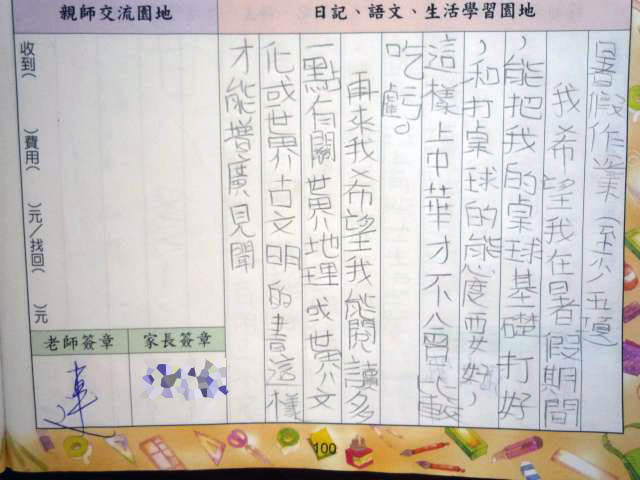 親師交流園地
日記、語文、生活學習園地
暑假作業(至少五項)
我希望我在暑假期間
,能把我的桌球基礎打好
,和打桌球的態度要好,
這樣上中華才不會比較
吃虧。
再來我希望我能閱讀多
一點有關世界地理或世界文
化或世界古文明的書這樣
才能增廣見聞
收到( )費用( )元/找回( )元
老師簽章
家長簽章
100